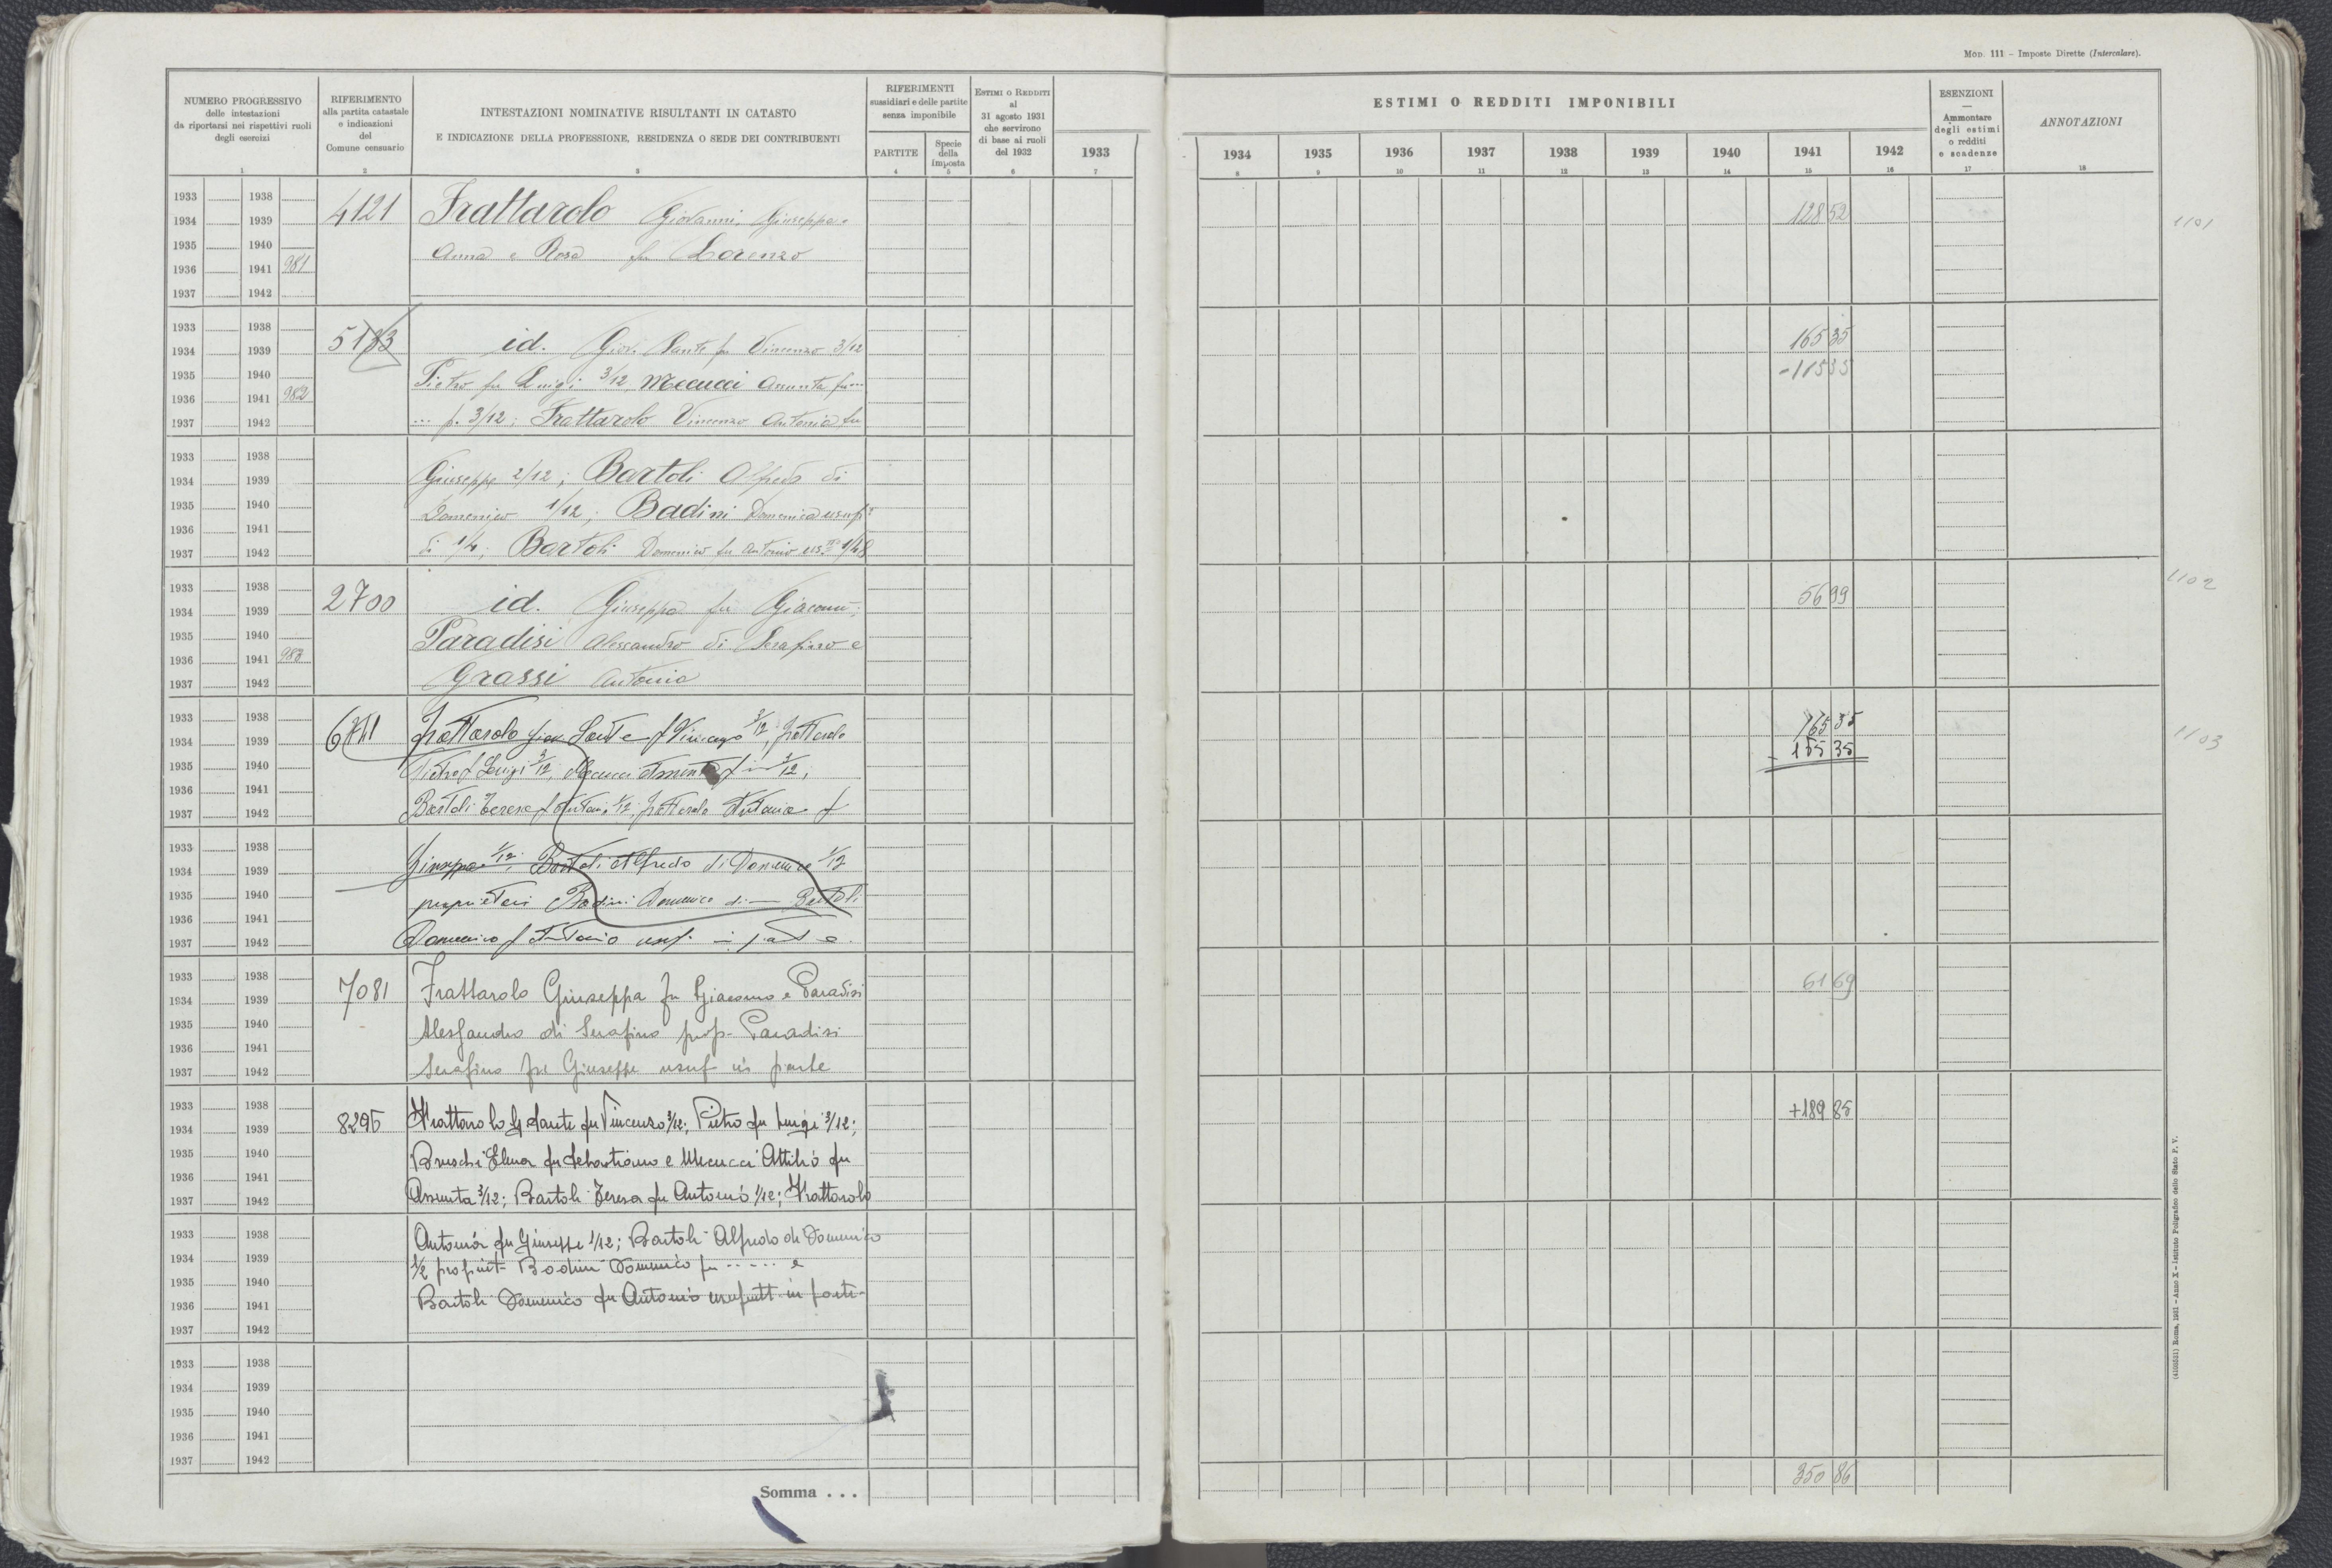 MOD. 111 – Imposte Dirette (Intercalare).
NUMERO PROGRESSIVO
delle intestazioni
da riportarsi nei rispettivi ruoli
degli esercizi
1
RIFERIMENTO
alla partita catastale
e indicazioni
del
Comune censuario
2
INTESTAZIONI NOMINATIVE RISULTANTI IN CATASTO
E INDICAZIONE DELLA PROFESSIONE, RESIDENZA O SEDE DEI CONTRIBUENTI
3
RIFERIMENTI
sussidiari e delle partite
senza imponibile
PARTITE
4
Specie
della
imposta
5
ESTIMI O REDDITI
al
31 agosto 1931
che servirono
di base ai ruoli
del 1932
6
1933
7
ESTIMI O REDDITI IMPONIBILI
1934 1935 1936 1937 1938 1939 1940 1941 1942
8 9 10 11 12 13 14 15 16
ESENZIONI
—
Ammontare
degli estimi
o redditi
e scadenze
17
ANNOTAZIONI
18
1933 1938
1934 1939 4121 Frattarolo Giovanni, Giuseppa, 128 52 1101
1935 1940 Anna e Rosa fu Lorenzo
1936 1941 981
1937 1942
1933 1938
1934 1939 5133 id. Giov. Sante fu Vincenzo 3/12 165 35
1935 1940 Pietro fu Luigi 3/12, Mecucci Assunta fu ... - 115 35
1936 1941 982
1937 1942 ... p. 3/12; Frattarolo Vincenzo Antonia fu
1933 1938
1934 1939 Giuseppe 2/12; Bartoli Alfredo di
1935 1940 Domenico 1/12; Badini Domenica usuf.
1936 1941
1937 1942 di 1/4; Bartoli Domenico fu Antonio us. 1/48
1933 1938
1934 1939 2700 id. Giuseppa fu Giacomo; 56 99 1102
1935 1940 Paradisi Alessandro di Serafino e
1936 1941 983
1937 1942 Grassi Antonia
1933 1938
1934 1939 6741 Frattarolo Giov. Sante f Vincenzo 3/12, Frattarolo 165 35 1103
1935 1940 Pietro f Luigi 3/12, Mecucci Assunta f — 3/12; - 155 35
1936 1941
1937 1942 Bartoli Teresa f Antonio 1/12, Frattarolo Antonia f
1933 1938
1934 1939 Giuseppe 1/12; Bartoli Alfredo di Domenico 1/12
1935 1940 proprietari Badini Domenico di — Bartoli
1936 1941
1937 1942 Domenico f Antonio usuf. in parte.
1933 1938
1934 1939 7081 Frattarolo Giuseppa fu Giacomo e Paradisi 61 69
1935 1940 Alessandro di Serafino prop. Paradisi
1936 1941
1937 1942 Serafino fu Giuseppe usuf in parte
1933 1938
1934 1939 8295 Frattarolo G Sante fu Vincenzo 3/12; Pietro fu Luigi 3/12; +189 85
1935 1940 Bruschi Elena fu Sebastiano e Mecucci Attilio fu
1936 1941
1937 1942 Assunta 3/12; Bartoli Teresa fu Antonio 1/12; Frattarolo
1933 1938 Antonia fu Giuseppe 1/12; Bartoli Alfredo di Domenico
1934 1939 1/2 propriet. Badini Domenico fu ..... e
1935 1940
1936 1941 Bartoli Domenico fu Antonio usufrutt. in parte.
1937 1942
1933 1938
1934 1939
1935 1940
1936 1941
1937 1942
Somma . . . 350 86
(4100531) Roma, 1931 – Anno X – Istituto Poligrafico dello Stato P. V.